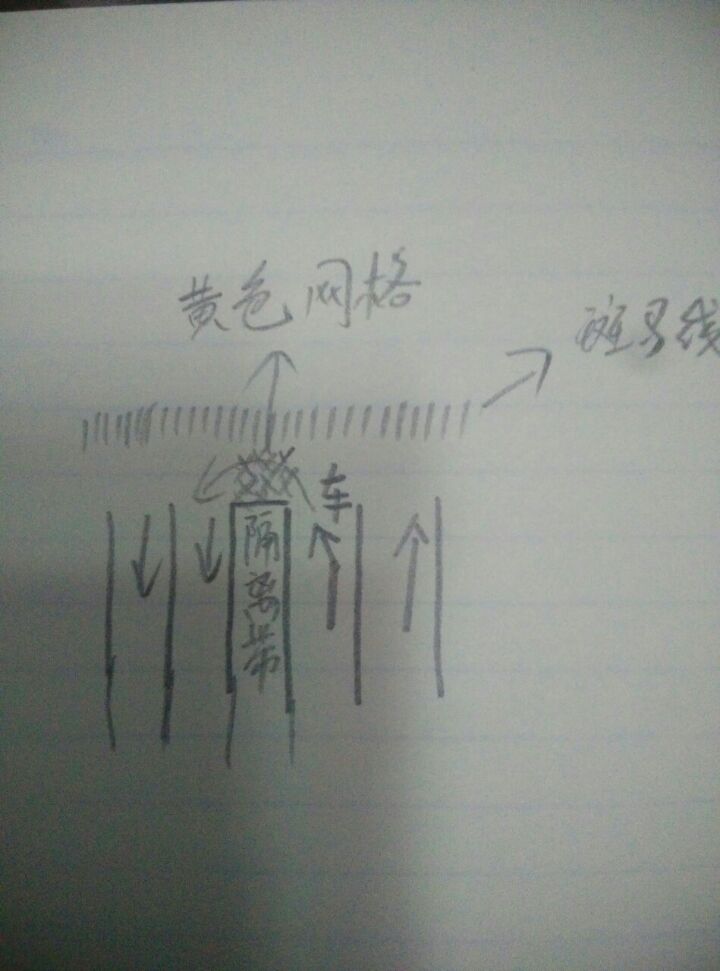 黄色网格
斑马线
车
隔离带